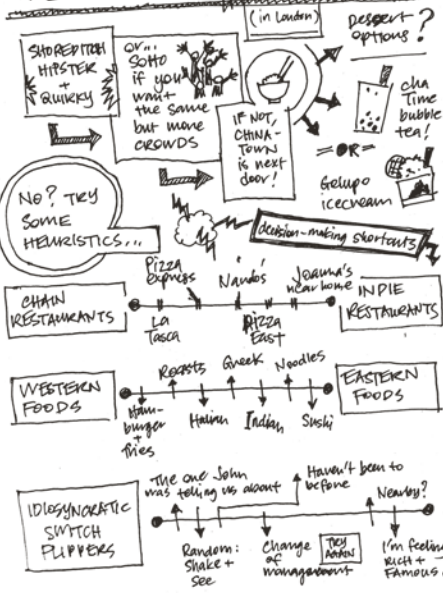 (in London)
DESSERT
OPTIONS?
SHOREDITCH
HIPSTER
+
QUIRKY
or...
SOHO
if you
want
the same
but more
CROWDS
IF NOT,
CHINA-
TOWN
is next
door!
cha
Time
bubble
tea!
= OR =
Gelupo
icecream
NO? TRY
SOME
HEURISTICS...
decision-making shortcuts
CHAIN
RESTAURANTS
Pizza
Express
Nando's
Joanna's
near home
La
Tasca
Pizza
East
INDIE
RESTAURANTS
WESTERN
FOODS
Roasts
Greek
Noodles
Ham-
burger
+
fries
Italian
Indian
Sushi
EASTERN
FOODS
IDIOSYNCRATIC
SWITCH
FLIPPERS
The one John
was telling us about
Haven't been to
before
Nearby?
Random:
Shake +
see
Change of
management
TRY
AGAIN
I'm feeling
RICH +
FAMOUS